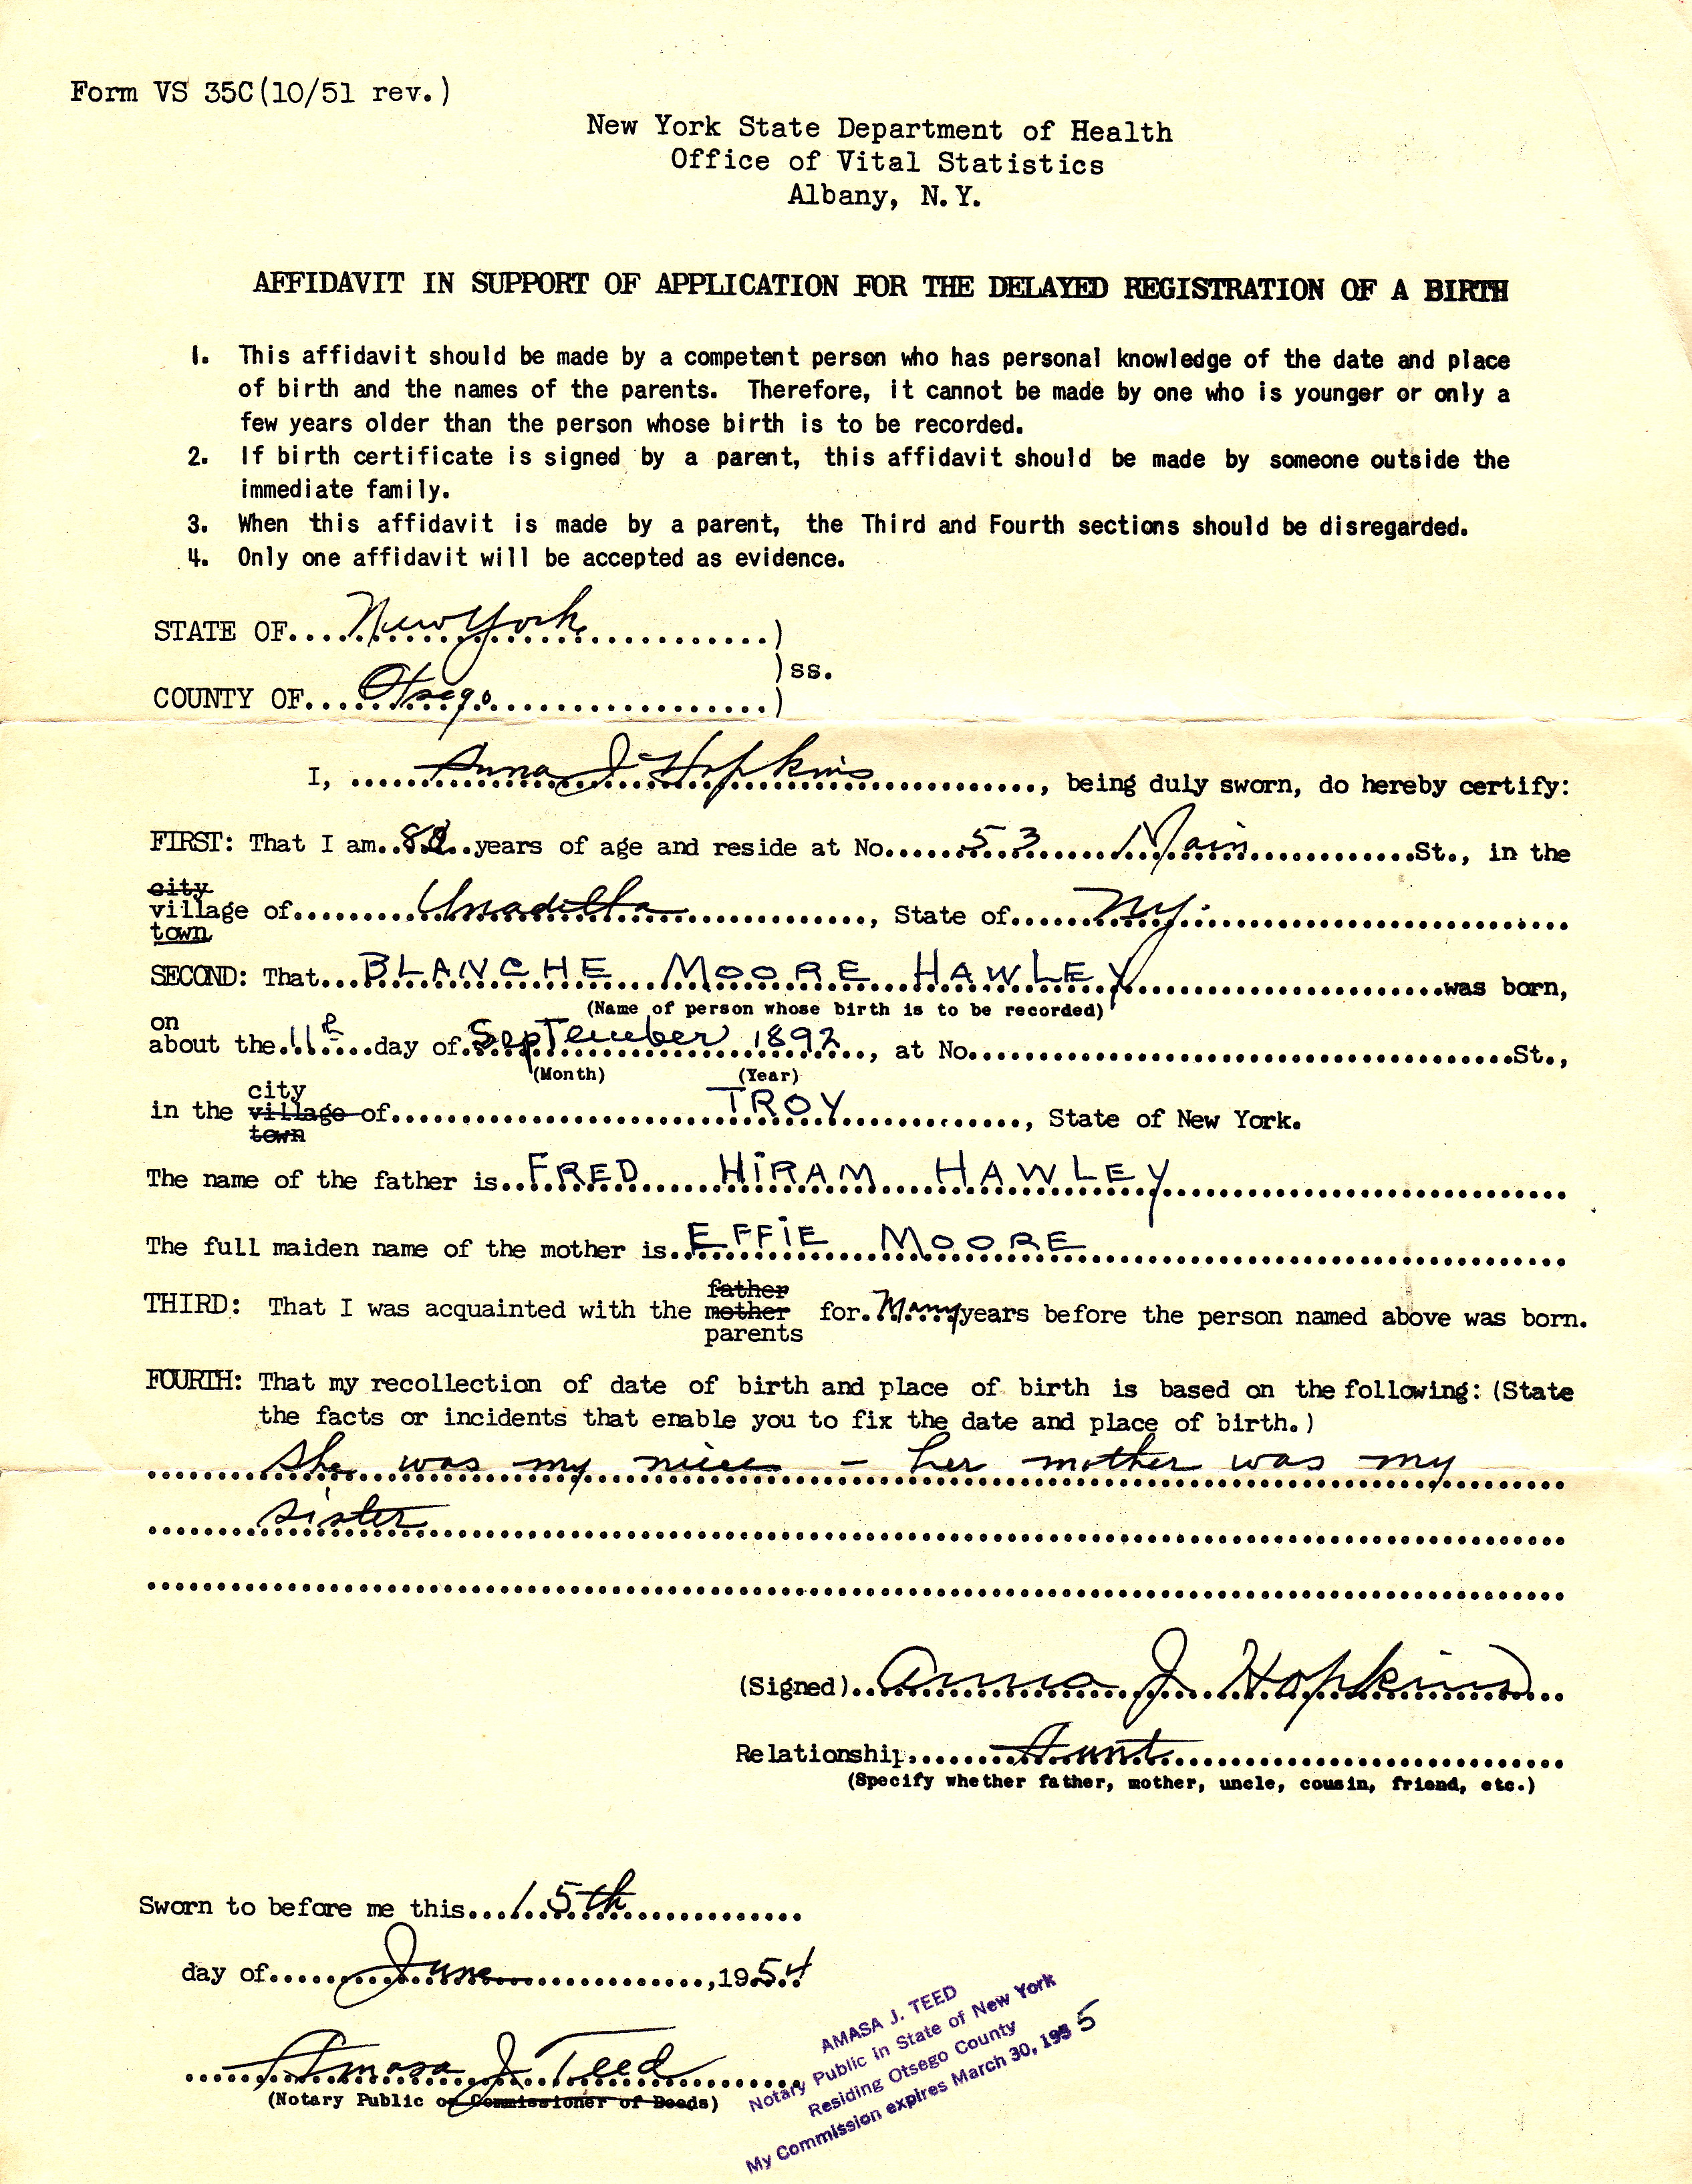 Form VS 35C(10/51 rev.)
New York State Department of Health
Office of Vital Statistics
Albany, N.Y.
AFFIDAVIT IN SUPPORT OF APPLICATION FOR THE DELAYED REGISTRATION OF A BIRTH
1. This affidavit should be made by a competent person who has personal knowledge of the date and place
of birth and the names of the parents. Therefore, it cannot be made by one who is younger or only a
few years older than the person whose birth is to be recorded.
2. If birth certificate is signed by a parent, this affidavit should be made by someone outside the
immediate family.
3. When this affidavit is made by a parent, the Third and Fourth sections should be disregarded.
4. Only one affidavit will be accepted as evidence.
STATE OF....New York..........)
)ss.
COUNTY OF....Otsego..........)
I, ......Anna J Hopkins.........., being duly sworn, do hereby certify:
FIRST: That I am.. ..years of age and reside at No......53 Main..........St., in the
city
village of.......Unadilla.........., State of......N.Y...........
town
SECOND: That...BLANCHE MOORE HAWLEY..........was born,
(Name of person whose birth is to be recorded)
on
about the.11th...day of.September 1892.., at No..........St.,
(Month) (Year)
city
in the village of..........TROY.........., State of New York.
town
The name of the father is..FRED HIRAM HAWLEY..........
The full maiden name of the mother is..EFFIE MOORE..........
father
THIRD: That I was acquainted with the mother for.Many years before the person named above was born.
parents
FOURTH: That my recollection of date of birth and place of birth is based on the following: (State
the facts or incidents that enable you to fix the date and place of birth.)
She was my niece - her mother was my
sister
(Signed)..Anna J Hopkins...
Relationship.......Aunt..........
(Specify whether father, mother, uncle, cousin, friend, etc.)
Sworn to before me this...15th..........
day of......June..........,1954
Amasa J Teed
(Notary Public or Commissioner of Deeds)
AMASA J. TEED
Notary Public in State of New York
Residing Otsego County
My Commission expires March 30, 195 5